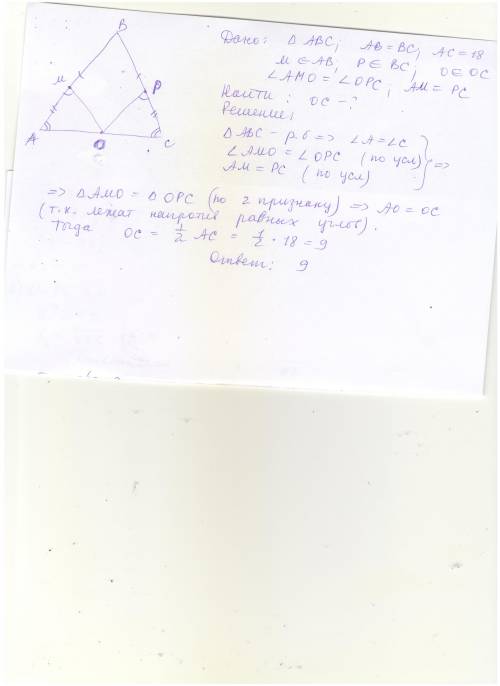 B
M
P
A
O
C
Дано: Δ ABC; AB = BC; AC = 18
M ∈ AB; P ∈ BC; O ∈ OC
∠AMO = ∠OPC; AM = PC
Найти: OC - ?
Решение:
Δ ABC - р.б => ∠A = ∠C
∠AMO = ∠OPC (по усл)
AM = PC (по усл)
} =>
=> Δ AMO = Δ OPC (по 2 признаку) => AO = OC
(т.к. лежат напротив равных углов).
Тогда OC = 1/2 AC = 1/2 · 18 = 9
Ответ: 9